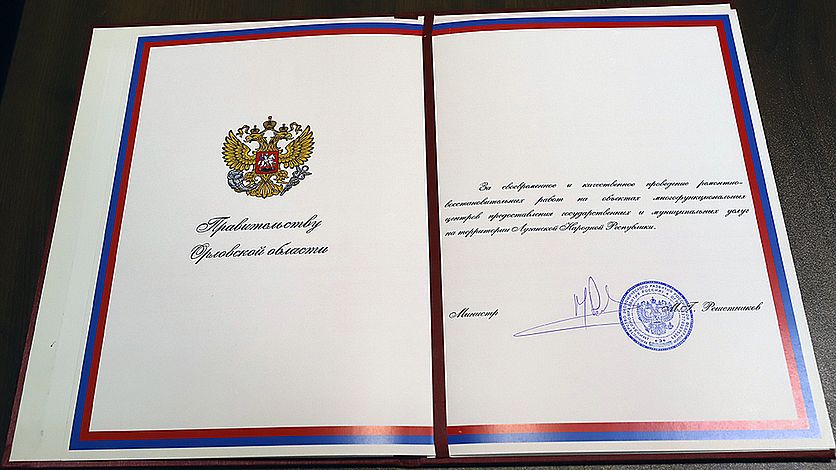 Правительству
Орловской области
За своевременное и качественное проведение ремонтно-
восстановительных работ на объектах многофункциональных
центров предоставления государственных и муниципальных услуг
на территории Луганской Народной Республики.
Министр
М.Г. Решетников